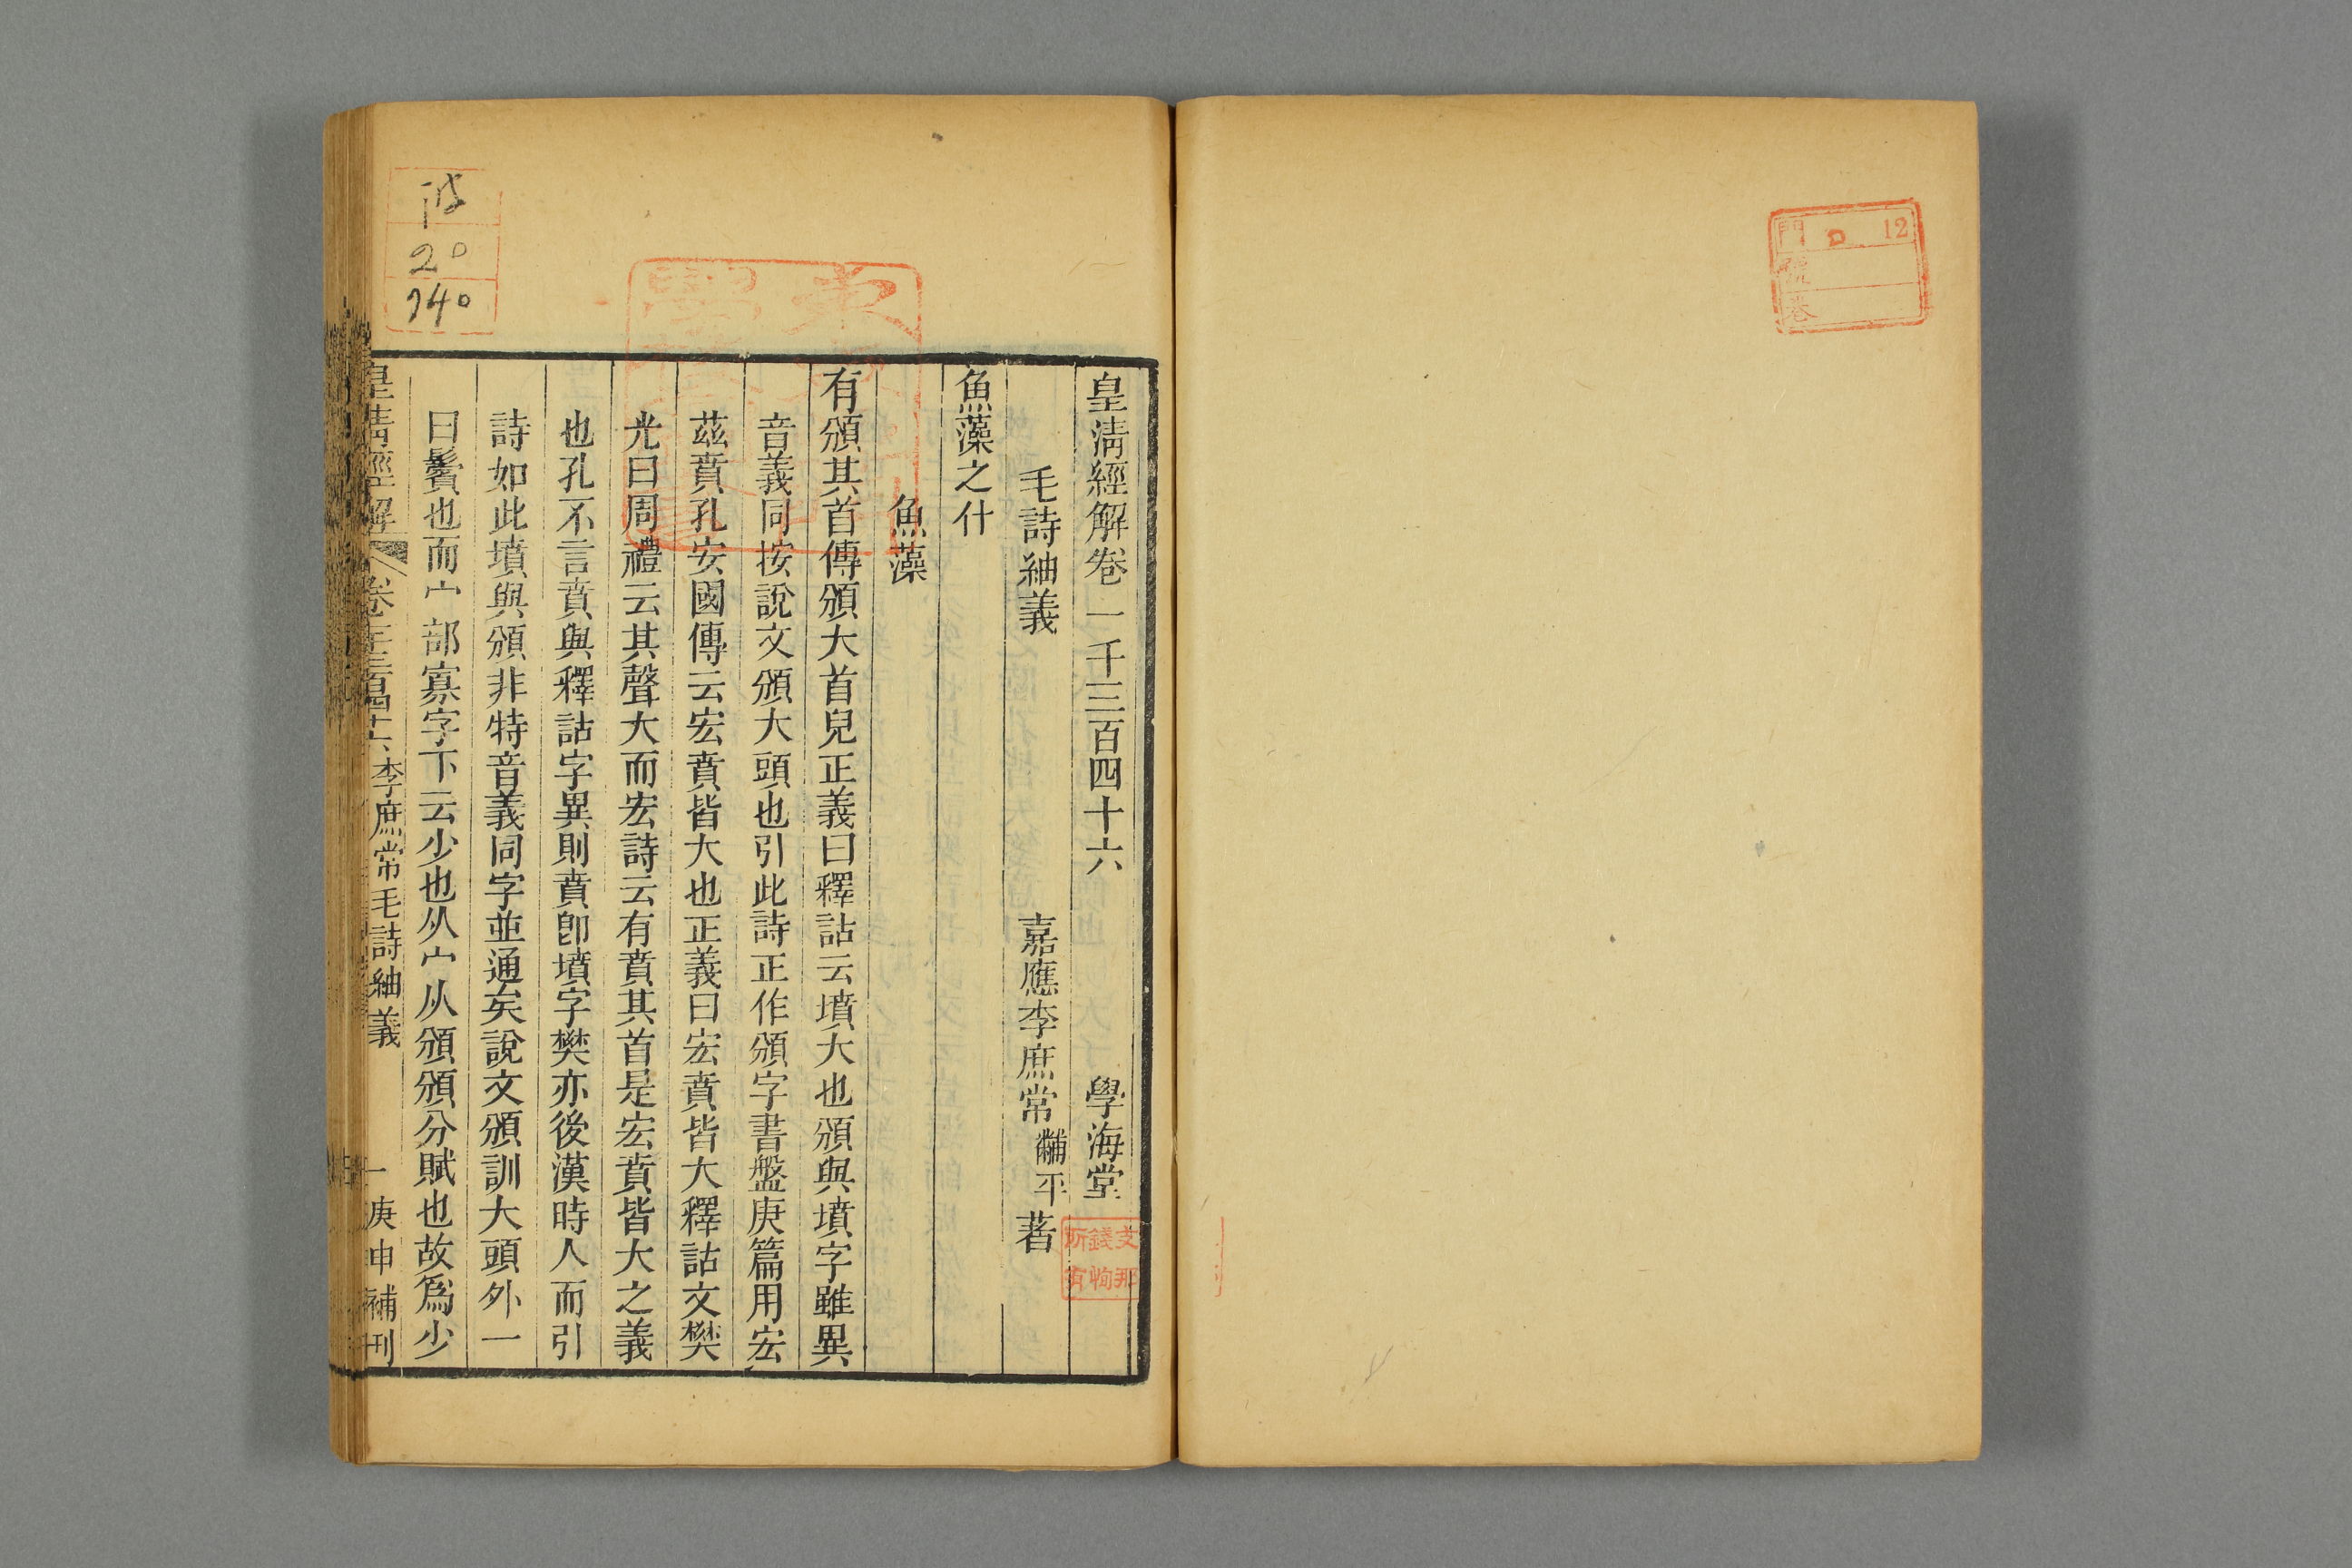 門 12
號
巻
皇淸經解卷一千三百四十六 學海堂
毛詩紬義 嘉應李庶常黼平著
魚藻之什
魚藻
有頒其首傳頒大首皃正義曰釋詁云墳大也頒與墳字雖異
音義同按說文頒大頭也引此詩正作頒字書盤庚篇用宏
茲賁孔安國傳云宏賁皆大也正義曰宏賁皆大釋詁文樊
光曰周禮云其聲大而宏詩云有賁其首是宏賁皆大之義
也孔不言賁與釋詁字異則賁卽墳字樊亦後漢時人而引
詩如此墳與頒非特音義同字並通矣說文頒訓大頭外一
曰鬢也而宀部寡字下云少也从宀从頒頒分賦也故爲少
皇淸經解 卷一千三百四十六 李庶常毛詩紬義 一 庚申補刊
支那
錢恂
所有
20
940